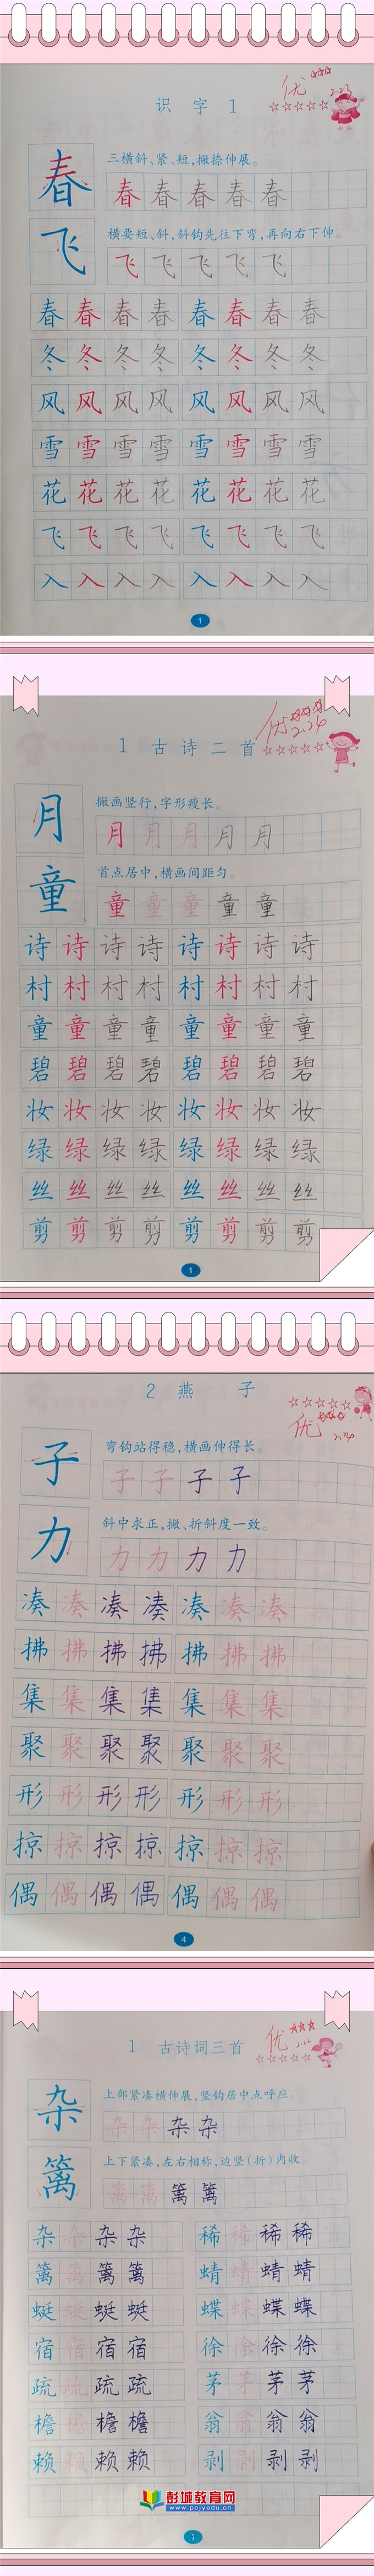 优
2.23
识 字 1
春
三横斜、紧、短,撇捺伸展。
春 春 春 春 春
飞
横要短、斜,斜钩先往下弯,再向右下伸。
飞 飞 飞 飞 飞
春 春 春 春 春 春 春 春
冬 冬 冬 冬 冬 冬 冬 冬
风 风 风 风 风 风 风 风
雪 雪 雪 雪 雪 雪 雪 雪
花 花 花 花 花 花 花 花
飞 飞 飞 飞 飞 飞 飞 飞
入 入 入 入 入 入 入 入
1
优
2.24
1 古 诗 二 首
月
撇画竖行,字形瘦长。
月 月 月 月 月
童
首点居中,横画间距匀。
童 童 童 童 童
诗 诗 诗 诗 诗 诗 诗 诗
村 村 村 村 村 村 村 村
童 童 童 童 童 童 童 童
碧 碧 碧 碧 碧 碧 碧 碧
妆 妆 妆 妆 妆 妆 妆 妆
绿 绿 绿 绿 绿 绿 绿 绿
丝 丝 丝 丝 丝 丝 丝 丝
剪 剪 剪 剪 剪 剪 剪 剪
1
2 燕 子
优
子
弯钩站得稳,横画伸得长。
子 子 子 子
力
斜中求正,撇、折斜度一致。
力 力 力 力
凑 凑 凑 凑 凑 凑 凑
拂 拂 拂 拂 拂 拂 拂
集 集 集 集 集 集 集
聚 聚 聚 聚 聚 聚 聚
形 形 形 形 形 形 形
掠 掠 掠 掠 掠 掠 掠
偶 偶 偶 偶 偶 偶 偶
4
优
1 古诗词三首
杂
上部紧凑横伸展,竖钩居中点呼应。
杂 杂 杂 杂
篱
上下紧凑,左右相称,边竖(折)内收。
篱 篱 篱 篱
杂 杂 杂 杂 稀 稀 稀 稀
篱 篱 篱 篱 蜻 蜻 蜻 蜻
蜓 蜓 蜓 蜓 蝶 蝶 蝶 蝶
宿 宿 宿 宿 徐 徐 徐 徐
疏 疏 疏 疏 茅 茅 茅 茅
檐 檐 檐 檐 翁 翁 翁 翁
赖 赖 赖 赖 剥 剥 剥 剥
彭城教育网
www.pcjyedu.cn
7